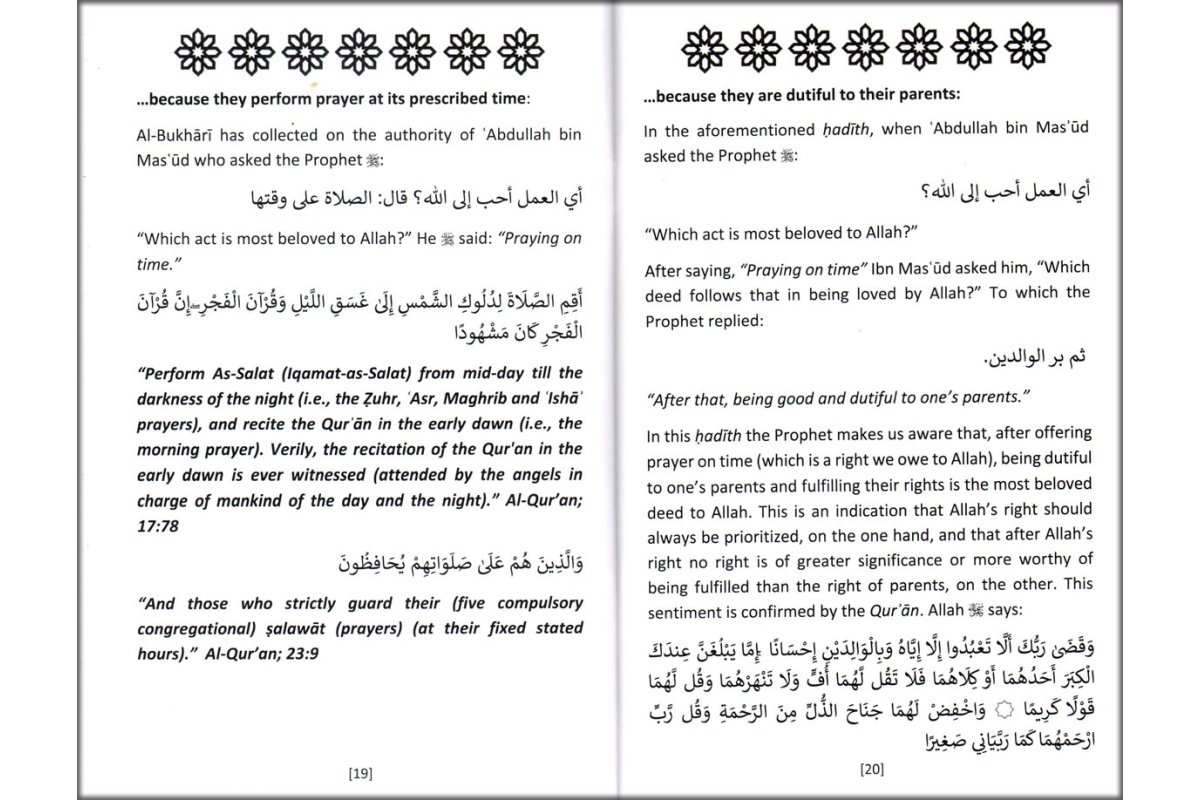 …because they perform prayer at its prescribed time:
Al-Bukhārī has collected on the authority of ʿAbdullah bin
Masʿūd who asked the Prophet ﷺ:
أي العمل أحب إلى الله؟ قال: الصلاة على وقتها
“Which act is most beloved to Allah?” He ﷺ said: “Praying on
time.”
أَقِمِ الصَّلَاةَ لِدُلُوكِ الشَّمْسِ إِلَىٰ غَسَقِ اللَّيْلِ وَقُرْآنَ الْفَجْرِ ۖ إِنَّ قُرْآنَ
الْفَجْرِ كَانَ مَشْهُودًا
“Perform As-Salat (Iqamat-as-Salat) from mid-day till the
darkness of the night (i.e., the Ẓuhr, ʿAsr, Maghrib and ʿIshāʾ
prayers), and recite the Qurʾān in the early dawn (i.e., the
morning prayer). Verily, the recitation of the Qur'an in the
early dawn is ever witnessed (attended by the angels in
charge of mankind of the day and the night).” Al-Qur’an;
17:78
وَالَّذِينَ هُمْ عَلَىٰ صَلَوَاتِهِمْ يُحَافِظُونَ
“And those who strictly guard their (five compulsory
congregational) ṣalawāt (prayers) (at their fixed stated
hours).” Al-Qur’an; 23:9
[19]
…because they are dutiful to their parents:
In the aforementioned ḥadīth, when ʿAbdullah bin Masʾūd
asked the Prophet ﷺ:
أي العمل أحب إلى الله؟
“Which act is most beloved to Allah?”
After saying, “Praying on time” Ibn Masʿūd asked him, “Which
deed follows that in being loved by Allah?” To which the
Prophet replied:
ثم بر الوالدين.
“After that, being good and dutiful to one’s parents.”
In this ḥadīth the Prophet makes us aware that, after offering
prayer on time (which is a right we owe to Allah), being dutiful
to one’s parents and fulfilling their rights is the most beloved
deed to Allah. This is an indication that Allah’s right should
always be prioritized, on the one hand, and that after Allah’s
right no right is of greater significance or more worthy of
being fulfilled than the right of parents, on the other. This
sentiment is confirmed by the Qurʾān. Allah ﷻ says:
وَقَضَىٰ رَبُّكَ أَلَّا تَعْبُدُوا إِلَّا إِيَّاهُ وَبِالْوَالِدَيْنِ إِحْسَانًا ۚ إِمَّا يَبْلُغَنَّ عِندَكَ
الْكِبَرَ أَحَدُهُمَا أَوْ كِلَاهُمَا فَلَا تَقُل لَّهُمَا أُفٍّ وَلَا تَنْهَرْهُمَا وَقُل لَّهُمَا
قَوْلًا كَرِيمًا ۞ وَاخْفِضْ لَهُمَا جَنَاحَ الذُّلِّ مِنَ الرَّحْمَةِ وَقُل رَّبِّ
ارْحَمْهُمَا كَمَا رَبَّيَانِي صَغِيرًا
[20]